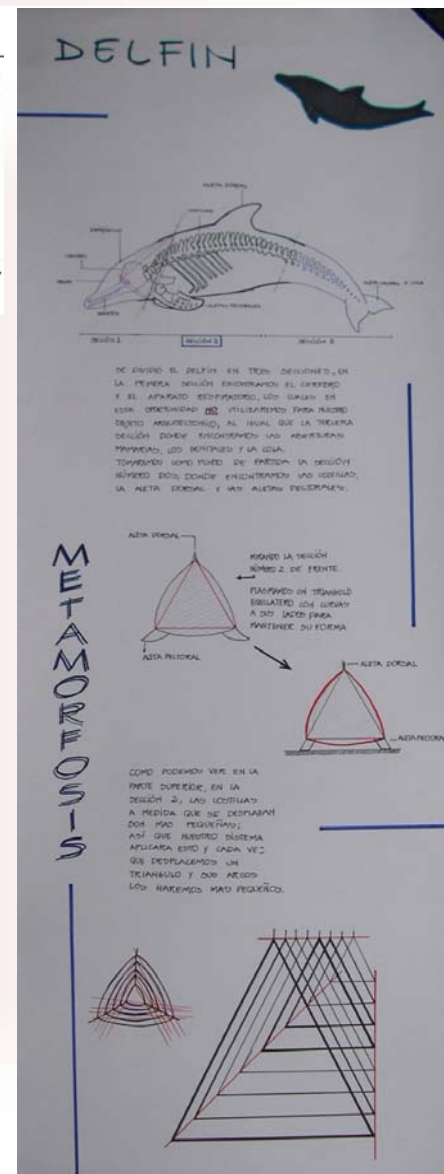 DELFIN
ALETA DORSAL
COSTILLAS
CEREBRO
ALETAS PECTORALES
ALETA CAUDAL O COLA
SECCIÓN 1
SECCIÓN 2
SECCIÓN 3
SE DIVIDIÓ EL DELFIN EN TRES SECCIONES, EN
LA PRIMERA SECCIÓN ENCONTRAMOS EL CEREBRO
Y EL APARATO RESPIRATORIO, LOS CUALES EN
ESTA OPORTUNIDAD NO UTILIZAREMOS PARA NUESTRO
OBJETO ARQUITECTONICO, AL IGUAL QUE LA TERCERA
SECCIÓN DONDE ENCONTRAMOS LAS ABERTURAS
MAMARIAS, LOS GENITALES Y LA COLA.
TOMAREMOS COMO PUNTO DE PARTIDA LA SECCIÓN
NÚMERO DOS, DONDE ENCONTRAMOS LAS COSTILLAS,
LA ALETA DORSAL Y LAS ALETAS PECTORALES.
METAMORFOSIS
ALETA DORSAL
MIRANDO LA SECCIÓN
NÚMERO 2 DE FRENTE.
PLASMANDO UN TRIANGULO
EQUILATERO CON CURVAS
A SUS LADOS PARA
MANTENER SU FORMA
ALETA PECTORAL
ALETA DORSAL
ALETA PECTORAL
COMO PODEMOS VER EN LA
PARTE SUPERIOR, EN LA
SECCIÓN 2, LAS COSTILLAS
A MEDIDA QUE SE DESPLAZAN
SON MAS PEQUEÑAS;
ASÍ QUE NUESTRO SISTEMA
APLICARA ESTO Y CADA VEZ
QUE DESPLACEMOS UN
TRIANGULO Y SUS ARCOS
LOS HAREMOS MAS PEQUEÑOS.